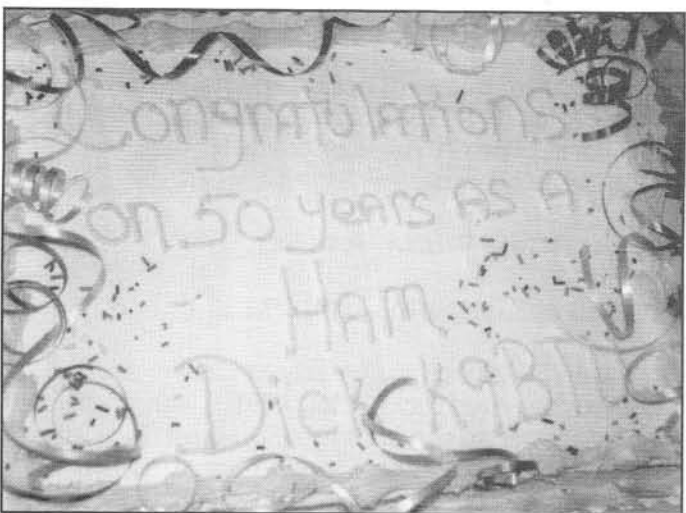 Congratulations
on 50 years as A
HAM
Dick